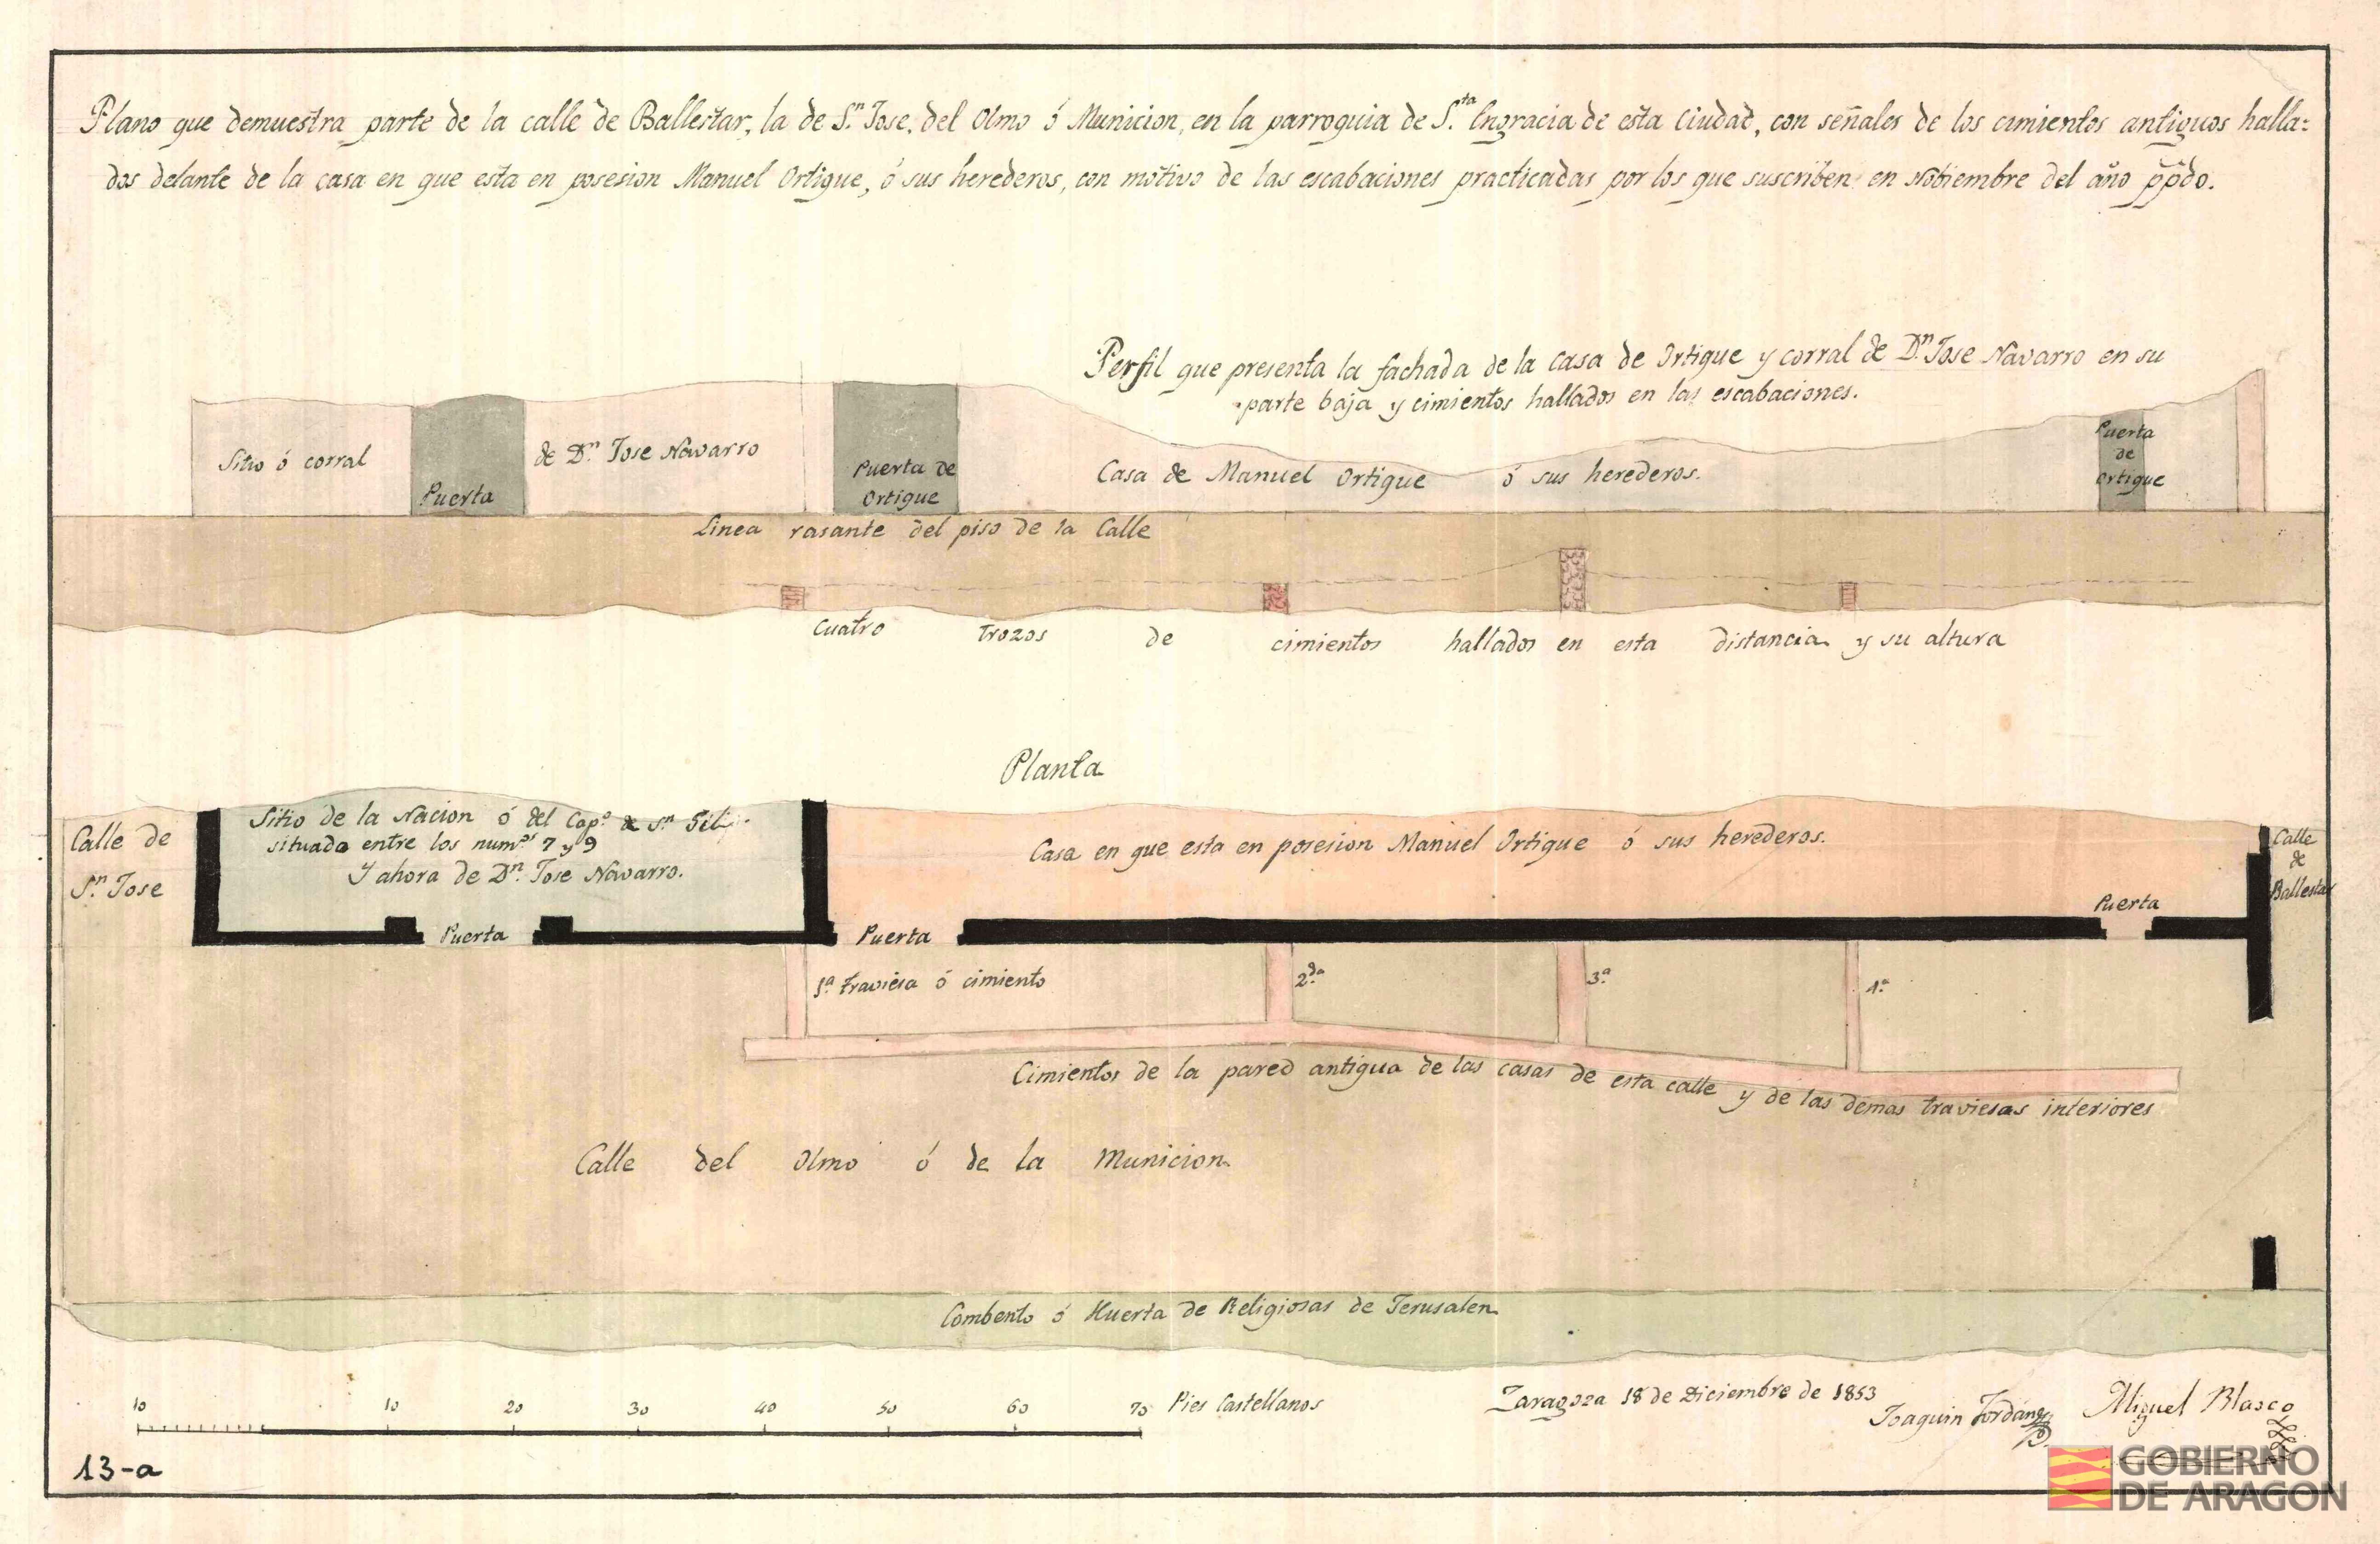 Plano que demuestra parte de la calle de Ballestar, la de S.n Jose, del Olmo ó Municion, en la parroquia de S.ta Engracia de esta Ciudad, con señales de los cimientos antiguos halla=
dos delante de la casa en que esta en posesion Manuel Ortigue, ó sus herederos, con motivo de las escabaciones practicadas por los que suscriben en Nobiembre del año ppdo.
Perfil que presenta la fachada de la casa de Ortigue y corral de D.n Jose Navarro en su
parte baja y cimientos hallados en las escabaciones.
Sitio ó corral
Puerta
de D.n Jose Navarro
Puerta de
Ortigue
Casa de Manuel Ortigue ó sus herederos.
Puerta
de
Ortigue
Linea rasante del piso de la Calle
Cuatro trozos de cimientos hallados en esta distancia y su altura
Planta
Calle de
S.n Jose
Sitio de la Nacion ó del Cap.o de S.n Gil
situado entre los num.s 7 y 9
Y ahora de D.n Jose Navarro.
Casa en que esta en posesion Manuel Ortigue ó sus herederos.
Calle
de
Ballestar
Puerta
Puerta
Puerta
1.a traviesa ó cimiento
2.da
3.a
4.a
Cimientos de la pared antigua de las casas de esta calle y de las demas traviesas interiores
Calle del Olmo ó de la Municion
Combento ó Huerta de Religiosas de Jerusalen
10 10 20 30 40 50 60 70 Pies Castellanos
Zaragoza 18 de Diciembre de 1853
Joaquin Jordán
Miguel Blasco
13-a
GOBIERNO
DE ARAGON